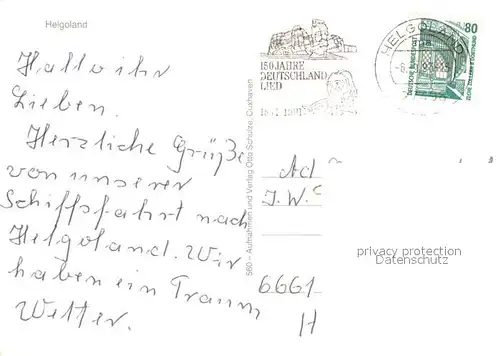 Helgoland
Hallo ihr
Lieben.
Herzliche Grüße
von unserer
Schiffsfahrt nach
Helgoland. Wir
haben ein Traum
Wetter.
560 – Aufnahmen und Verlag Otto Schulze, Cuxhaven
150 JAHRE
DEUTSCHLAND
LIED
HELGOLAND
80
DEUTSCHE BUNDESPOST
Ad
J.W.
6661
H
privacy protection
Datenschutz